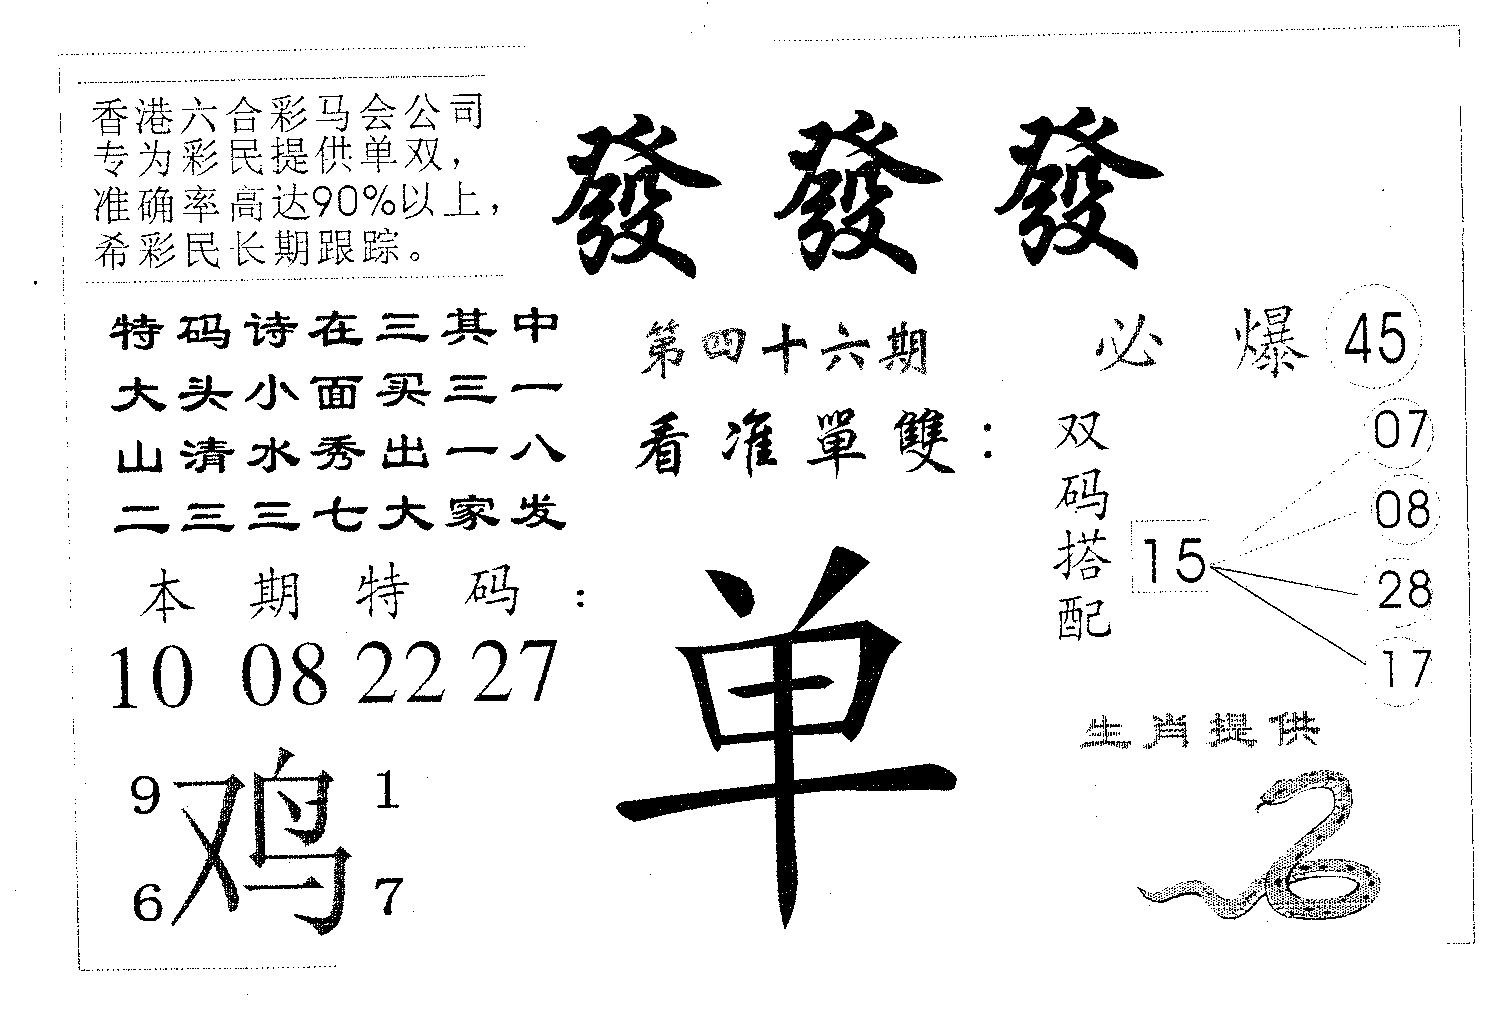 香港六合彩马会公司
专为彩民提供单双，
准确率高达90%以上，
希彩民长期跟踪。
發 發 發
特码诗在三其中
大头小面买三一
山清水秀出一八
二三三七大家发
本期特码：
10 08 22 27
9 1
鸡
6 7
第四十六期
看准單雙：
单
必爆 45
双码搭配
15
07
08
28
17
生肖提供